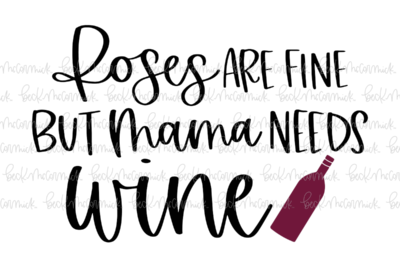 Roses ARE FINE
BUT mama NEEDS
wine